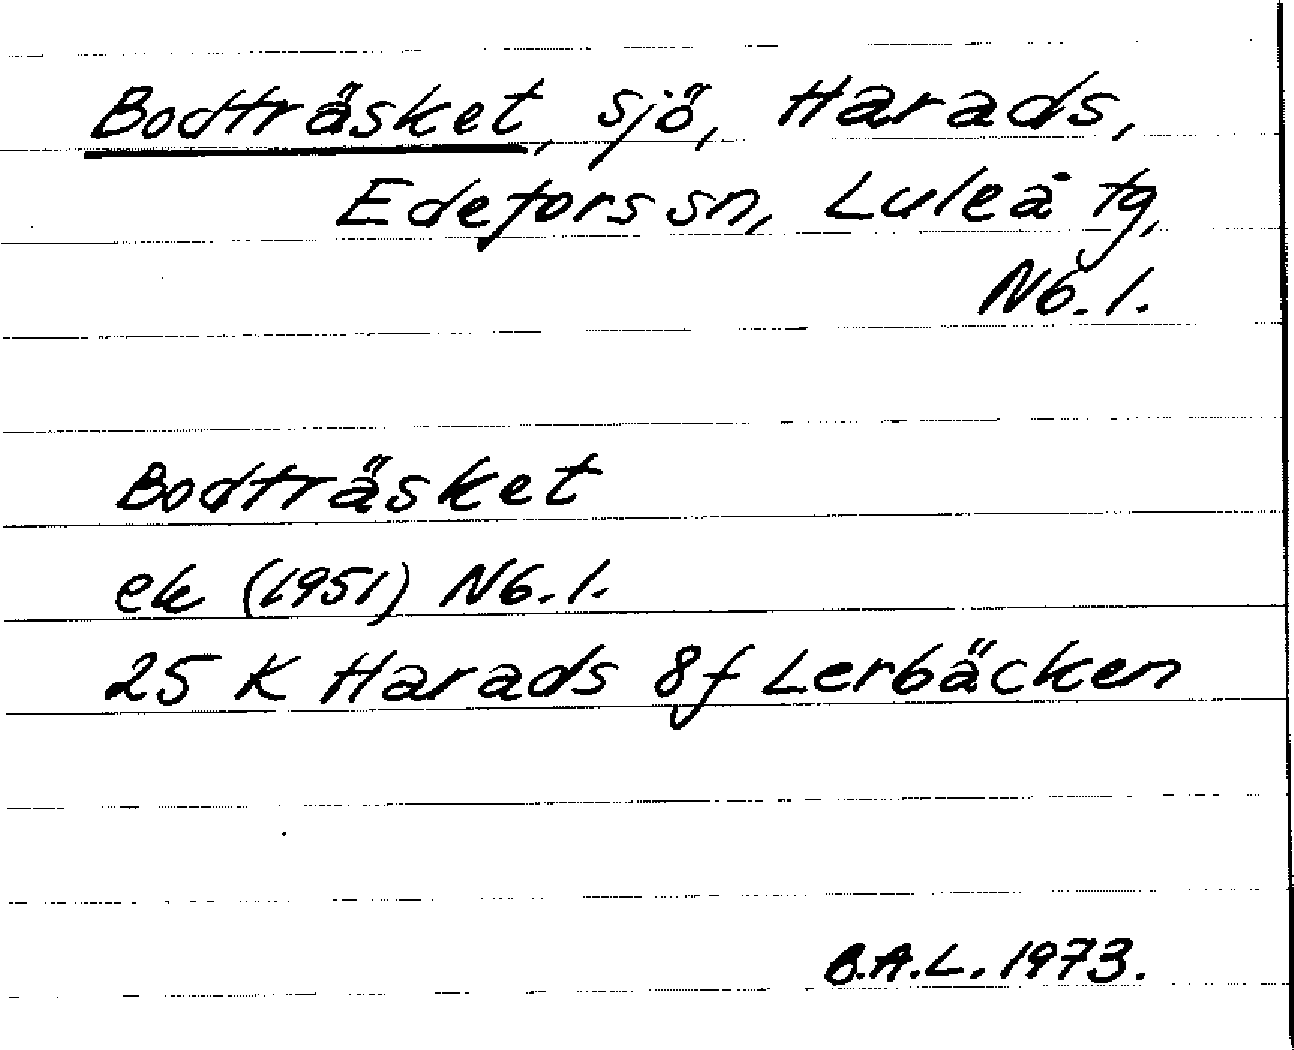 Bodträsket, sjö, Harads,
Edefors sn, Luleå tg,
Nb. l.
Bodträsket
ek (1951) Nb. l.
25 K Harads 8f Lerbäcken
B.A.L. 1973.